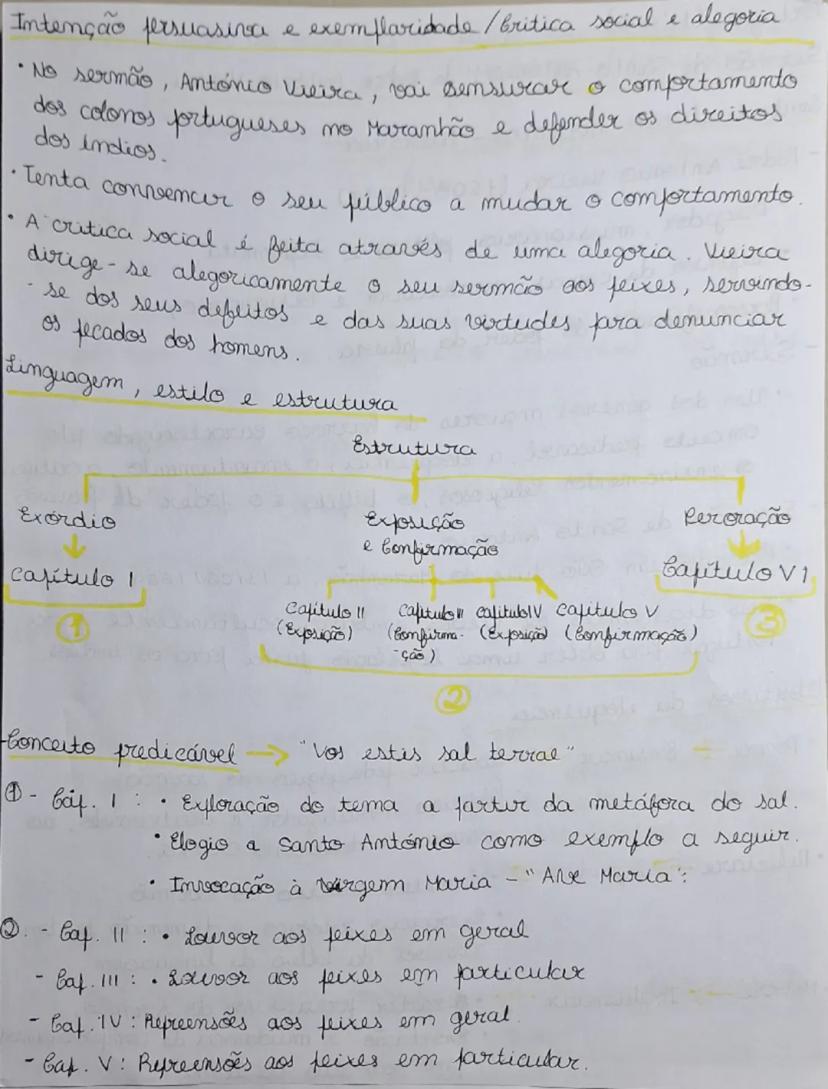 Intenção persuasiva e exemplaridade/Critica social e alegoria
• No sermão, António Vieira, vai sensurar o comportamento
dos colonos portugueses no Maranhão e defender os direitos
dos índios.
• Tenta convencer o seu público a mudar o comportamento.
• A critica social é feita através de uma alegoria. Vieira
dirige-se alegoricamente o seu sermão aos peixes, servindo-
-se dos seus defeitos e das suas virtudes para denunciar
os pecados dos homens.
Linguagem, estilo e estrutura
Estrutura
Exórdio Exposição Peroração
e Confirmação
Capítulo I Capítulo VI
Capítulo II Capítulo III Capítulo IV Capítulo V
(Exposição) (Confirma- (Exposição) (Confirmação)
-ção)
① ③
②
Conceito predicável → "Vos estis sal terrae"
① - Cáp. I : • Exploração do tema a partir da metáfora do sal.
• Elogio a Santo António como exemplo a seguir.
• Invocação à Virgem Maria - "Ave Maria":
② - Cap. II : • Louvor aos peixes em geral
- Cap. III : • Louvor aos peixes em particular
- Cap. IV : Repreensões aos peixes em geral.
- Cap. V : Repreensões aos peixes em particular.